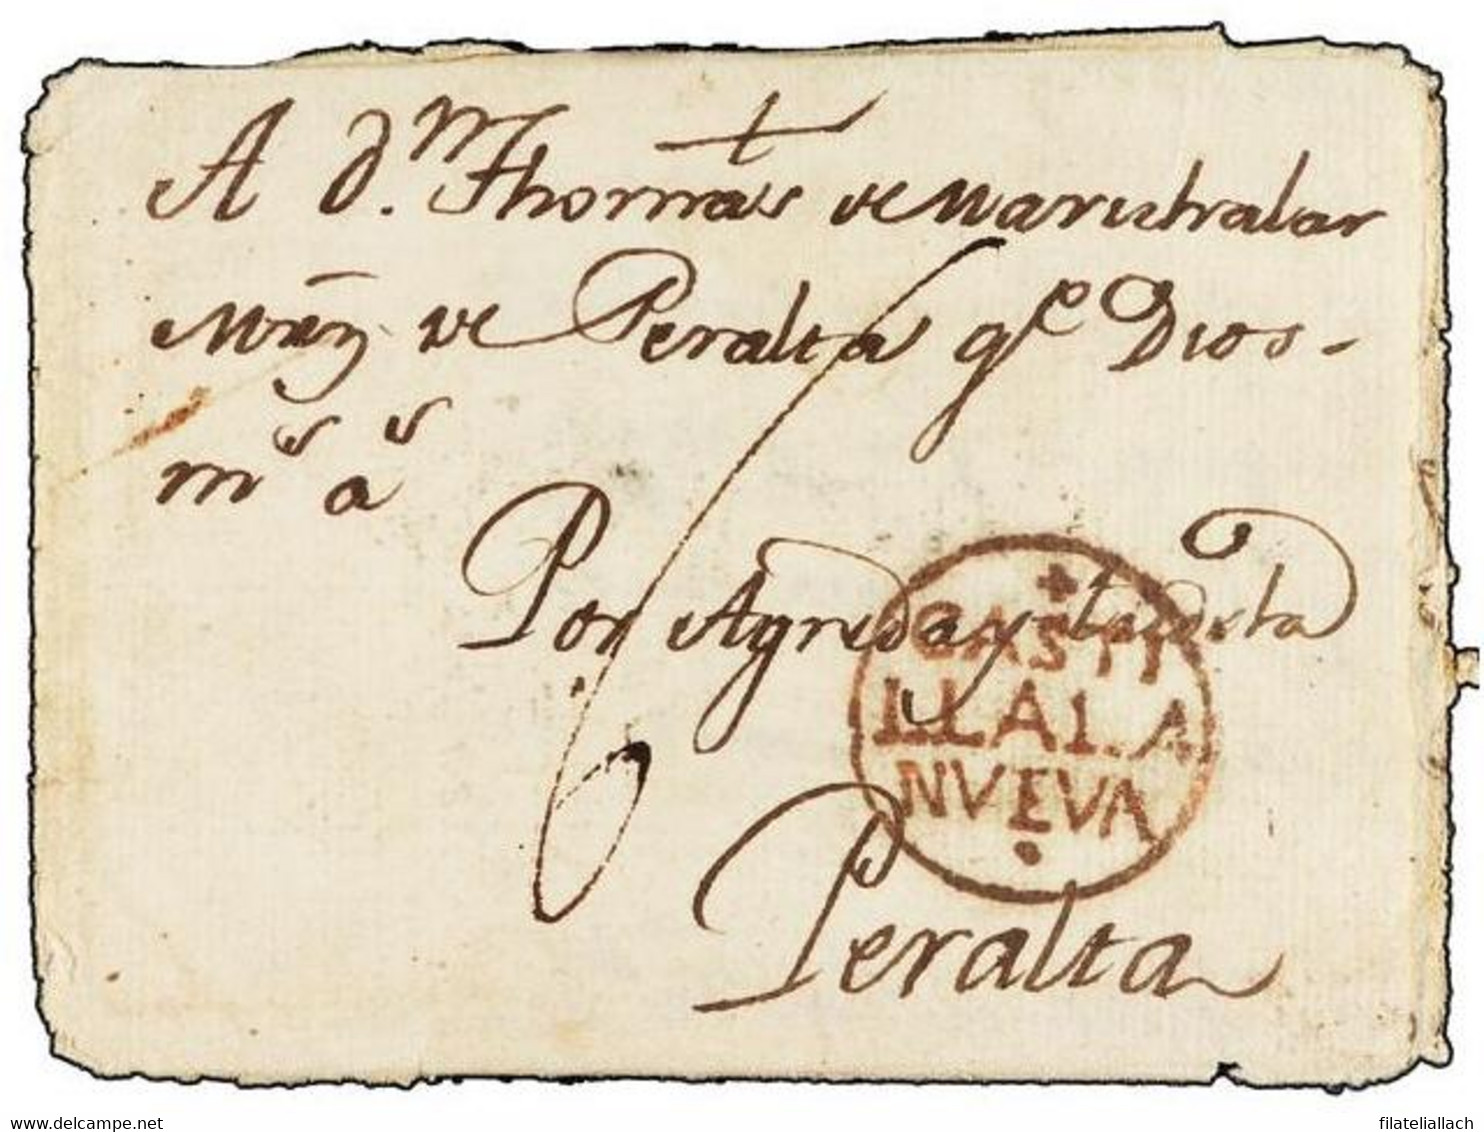 A d.ⁿ Thomas de Marichalar
de Peralta q.ᵉ Dios
mˢ aˢ
Por Agreda y Tudela
CASTI
LLA LA
NVEVA
Peralta
www.delcampe.net
filateliallach